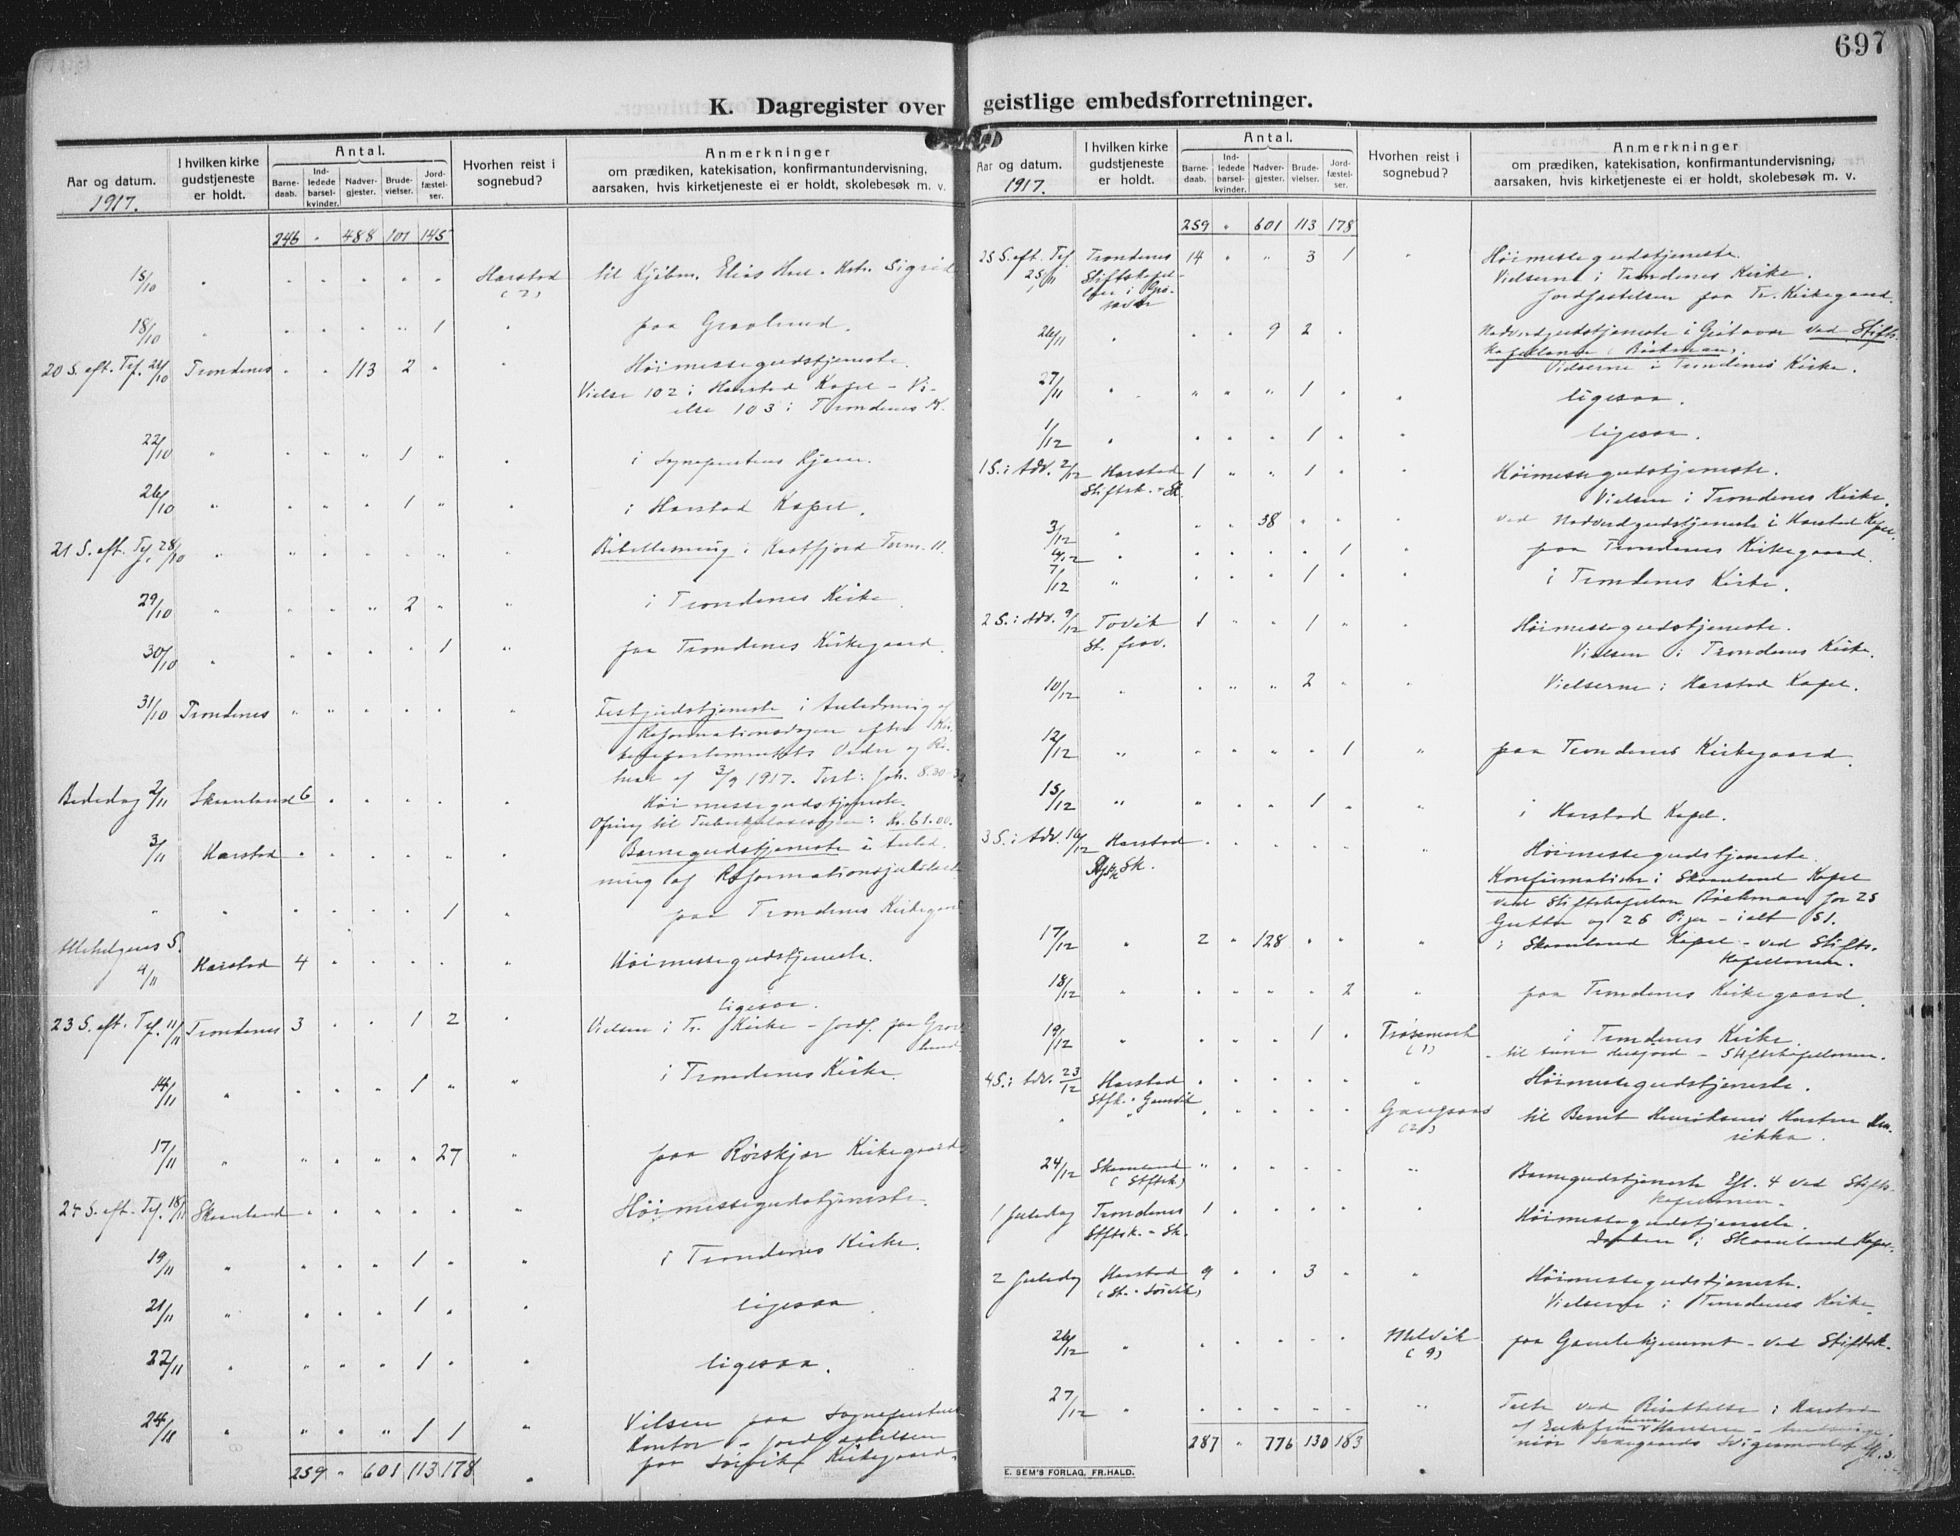 697
K. Dagregister over geistlige embedsforretninger.
Aar og datum.
1917.
I hvilken kirke
gudstjeneste
er holdt.
Antal.
Barne-
daab.
Ind-
ledede
barsel-
kvinder.
Nadver-
gjester.
Brude-
vielser.
Jord-
fæstel-
ser.
Hvorhen reist i
sognebud?
Anmerkninger
om prædiken, katekisation, konfirmantundervisning,
aarsaken, hvis kirketjeneste ei er holdt, skolebesøk m. v.
246 " 488 101 145
15/10 " " " " " " Harstad til Kjøbm. Elias
(2)
18/10 " " " " " 1 " paa Graalund.
20 S. eft. Tref. 21/10 Trondenes " " 113 2 " " Höimessegudstjeneste.
Vielse 102 i Harstad Kapel - Vi-
else 103 i Trondenes K.
22/10 " " " " 1 " " i Sogneprestens Hjem.
26/10 " " " " 1 " " i Harstad Kapel.
21 S. eft. Tref. 28/10 " " " " " " " Bibellesning i Kastfjord
29/10 " " " " 2 " " i Trondenes Kirke.
30/10 " " " " " 1 " paa Trondenes Kirkegaard.
31/10 Trondenes " " " " " " Festgudstjeneste i Anledning af
Reformationsdagen efter Kir-
kedepartementets Order og
af 3/9 1917. Text: Joh. 8.30-
Bededag 2/11 Skaanland 6 " " " " " Höimessegudstjeneste.
Ofring til Tuberkulosesagen: Kr. 61.00.
3/11 Harstad " " " " " " Barnegudstjeneste i Anled-
ning af Reformationsjubilæet
" " " " " " 1 " paa Trondenes Kirkegaard
Allehelgens S.
4/11 Harstad 4 " " " " " Höimessegudstjeneste.
ligesaa.
23 S. eft. Tref. 11/11 Trondenes 3 " " 1 2 " Vielsen i Tr. Kirke - Jordf. paa Graa-
lund.
14/11 " " " " 1 " " i Trondenes Kirke.
17/11 " " " " " 27 " paa Rörskjær Kirkegaard
24 S. eft. Tref. 18/11 Skaanland " " " " " " Höimessegudstjeneste.
19/11 " " " " 1 " " i Trondenes Kirke.
21/11 " " " " 1 " " ligesaa.
22/11 " " " " 1 " " ligesaa.
24/11 " " " " 1 1 " Vielsen paa Sogneprestens
Kontor - Jordfæstelsen
paa Sörvik Kirkegaard.
259 " 601 113 178
Aar og datum.
1917.
I hvilken kirke
gudstjeneste
er holdt.
Antal.
Barne-
daab.
Ind-
ledede
barsel-
kvinder.
Nadver-
gjester.
Brude-
vielser.
Jord-
fæstel-
ser.
Hvorhen reist i
sognebud?
Anmerkninger
om prædiken, katekisation, konfirmantundervisning,
aarsaken, hvis kirketjeneste ei er holdt, skolebesøk m. v.
259 " 601 113 178
25 S. eft. Tref. Trondenes 14 " " 3 1 " Höimessegudstjeneste.
25/11 Stiftskapel- Vielserne i Trondenes Kirke.
lan i Grö- Jordfæstelsen paa Tr. Kirkegaard.
tavær
26/11 " " " 9 2 " Nadverdgudstjeneste i Grötavær ved Stifts-
kapellanen Böckman.
Vielserne i Trondenes Kirke.
27/11 " " " " 1 " " ligesaa.
1/12 " " " " 1 " " ligesaa.
1 S. i Adv. 2/12 Harstad 1 " " 1 " " Höimessegudstjeneste.
Stiftsk. - Sk. Vielsen i Trondenes Kirke.
3/12 " " " 38 " " " ved Nadverdgudstjeneste i Harstad Kapel.
6/12 " " " " " 1 " paa Trondenes Kirkegaard.
7/12 " " " " 1 " " i Trondenes Kirke.
2 S. i Adv. 9/12 Tovik 1 " " 1 " " Höimessegudstjeneste.
St. Vielsen i Trondenes Kirke.
10/12 " " " " 2 " " Vielserne i Harstad Kapel.
12/12 " " " " " 1 " paa Trondenes Kirkegaard.
15/12 " " " " 1 " " i Harstad Kapel.
3 S. i Adv. 16/12 Harstad " " " " " " Höimessegudstjeneste.
Sk. Konfirmation i Skaanland Kapel
ved Stiftskapellan Böckman for 25
Gutter og 26 Piger - ialt 51.
17/12 " 2 " 128 " " " i Skaanland Kapel - ved Stifts-
kapellanen.
18/12 " " " " " 2 " paa Trondenes Kirkegaard.
19/12 " " " " 1 " i Trondenes Kirke.
(1) til - Stiftskapellanen.
4 S. i Adv. 23/12 Harstad " " " " " " Höimessegudstjeneste.
Stfsk. -
" " " " " " " Gangsaas til Bernt Henriksens
(2)
24/12 Skaanland " " " " " " Barnegudstjeneste Eft. 4 ved Stifts-
(Stftsk) kapellanen.
1 Juledag Trondenes 1 " " " " " Höimessegudstjeneste.
Stftsk. - Sk. Daaben i Skaanland Kapel.
2 Juledag Harstad 9 " " 3 " " Höimessegudstjeneste.
(St. - Sörvik) Vielserne i Trondenes Kirke.
26/12 " " " " " " Melvik paa Gamlehjemmet - ved Stiftsk.
(9)
27/12 " " " " " " " Tale ved Bisættelse i Harstad
af Enkefru Hansen
287 " 776 130 183
E. SEM'S FORLAG, FR.HALD.